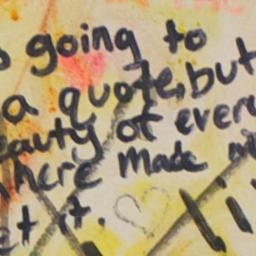 going to
a quote, but
eauty of ever
here made
et it.